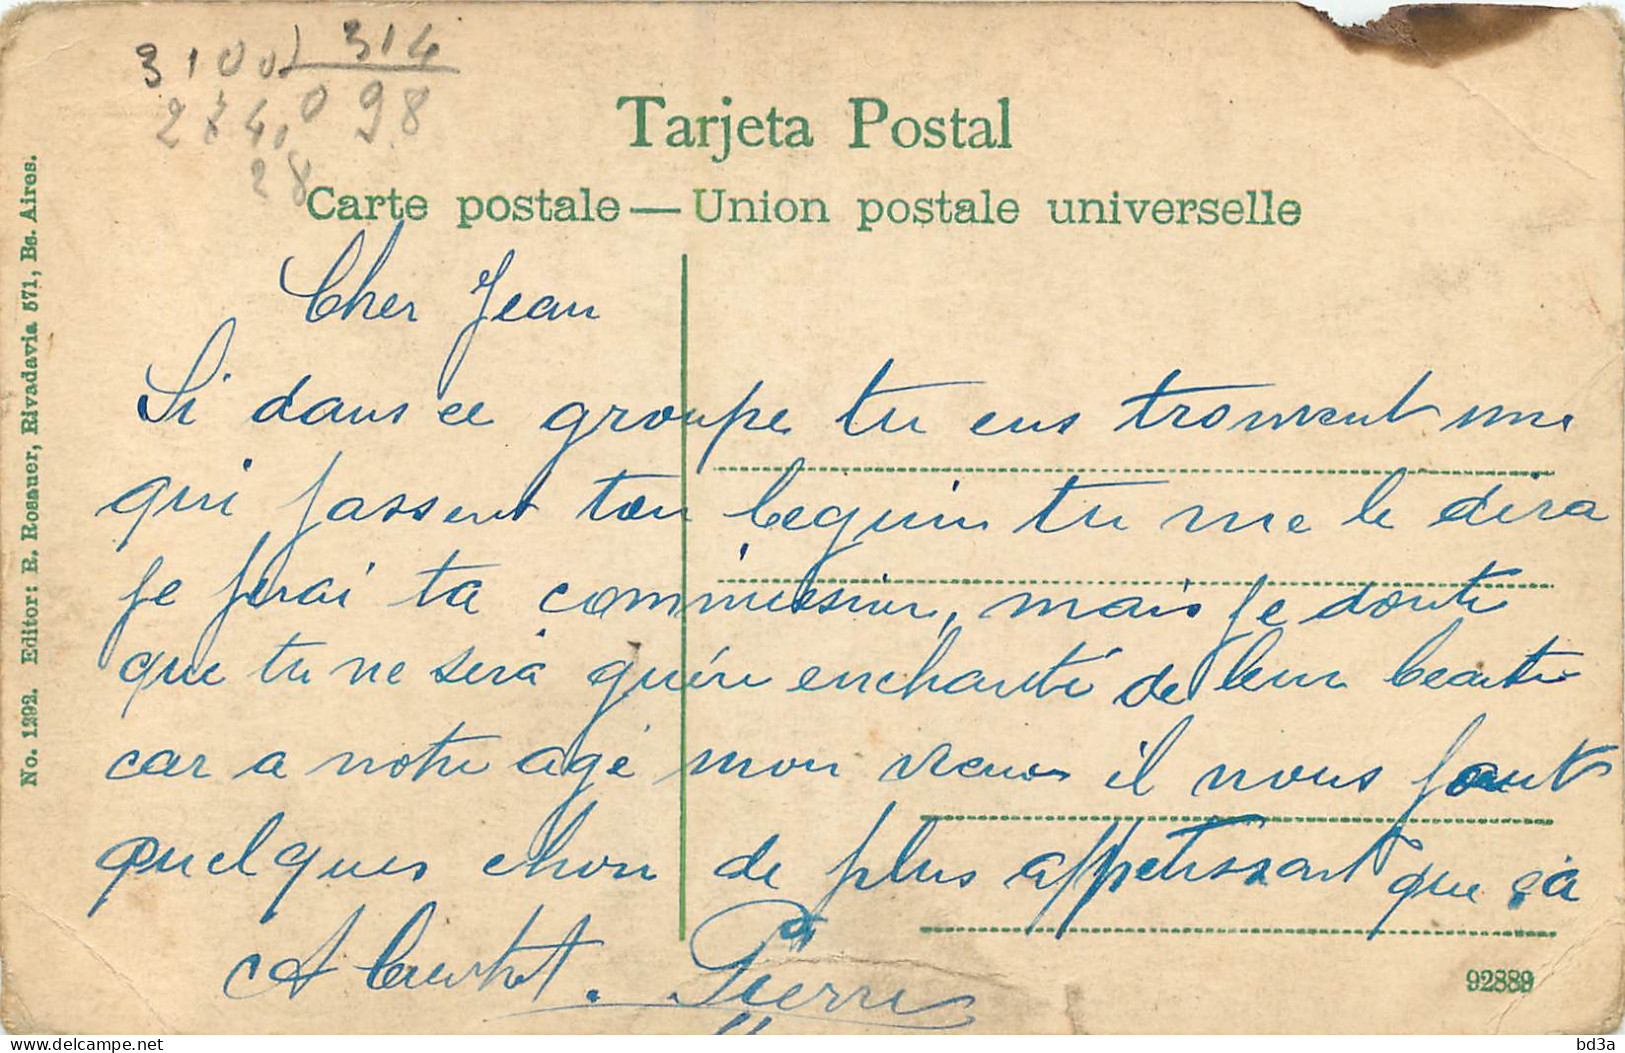 3100 314
274,0 98
28
Tarjeta Postal
Carte postale — Union postale universelle
No. 1292. Editor: R. Rosauer, Rivadavia 571, Bs. Aires.
Cher Jean
Si dans ce groupe tu ens trouvent une
qui fassent ton beguin tu me le dira
je ferai ta commission, mais je doute
que tu ne sera guére enchanté de leur beauté
car a notre age mon vieux il nous faut
quelques chose de plus appetissant que ça
A bientot. Pierre
92889
delcampe.net
bd3a